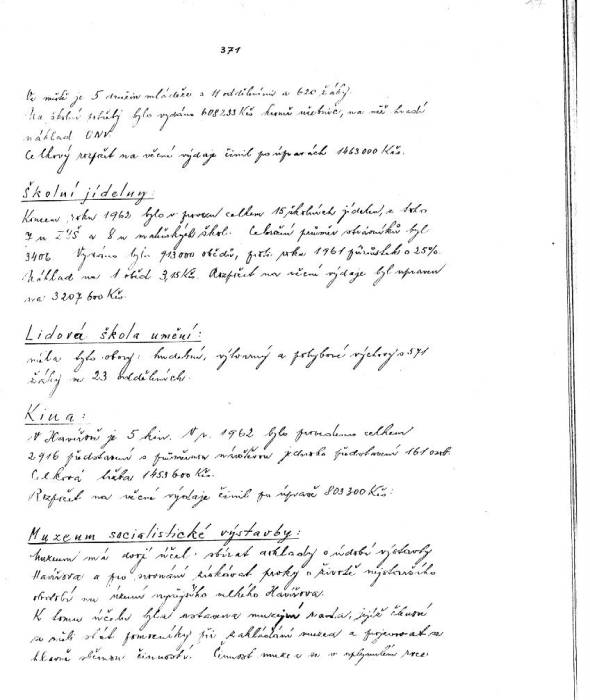 371
Ve městě je 5 družin mládeže s 11 odděleními a 620 žáky.
Na školní potřeby bylo vydáno 608233 Kčs kromě učebnic, na něž hradí
náklad ONV
Celkový rozpočet na věcné výdaje činil po úpravách 1463000 Kčs.
Školní jídelny:
Koncem roku 1962 bylo v provozu celkem 15 školních jídelen, z toho
7 u ZDŠ a 8 u mateřských škol. Celoroční průměr strávníků byl
3406. Vydáno bylo 913000 obědů, proti roku 1961 o 25%.
Náklad na 1 oběd 3,15 Kčs. Rozpočet na věcné výdaje byl upraven
na 3207600 Kčs.
Lidová škola umění:
měla tyto obory: hudební, výtvarný a pohybové výchovy s 571
žáky v 23 odděleních.
Kina:
V Havířově je 5 kin. V r. 1962 bylo provedeno celkem
2916 představení s průměrnou návštěvou jednoho představení 161 osob.
Celková tržba 1453600 Kčs.
Rozpočet na věcné výdaje činil po úpravě 803300 Kčs.
Muzeum socialistické výstavby:
Muzeum má dvojí účel: sbírat doklady o údobí výstavby
Havířova a pro srovnání získávat prvky o životě
období na území nynějšího města Havířova.
K tomu účelu byla ustavena muzejní rada, jejíž členové
se měli stát pomocníky při zakládání muzea a projevovat se
hlavně sběrnou činností. Činnost muzea se v uplynulém roce